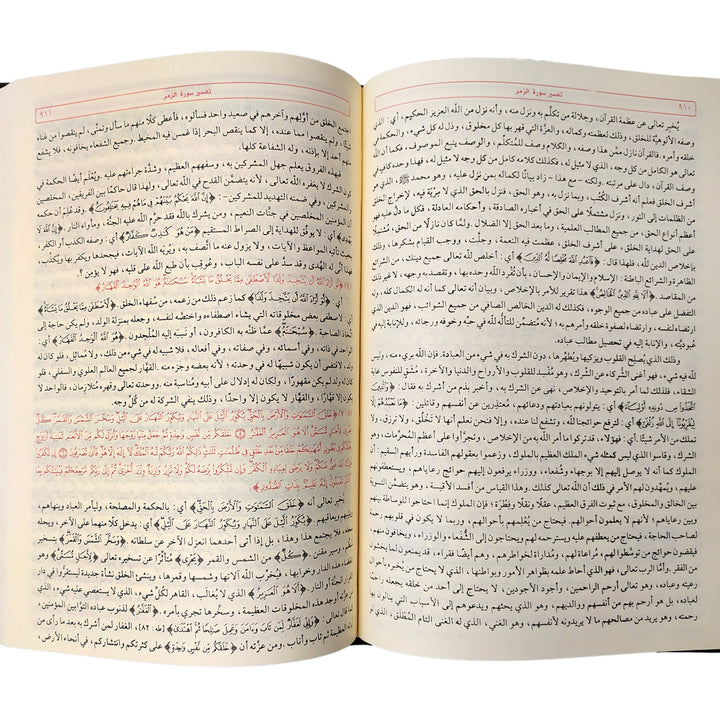 تفسير سورة الزمر
٩١٠
يُخبر تعالى عن عظمة القرآن، وجلالة من تكلَّم به ونزل منه، وأنه نزل من اللَّه العزيز الحكيم؛ أي: الذي
وصفه الألوهيَّة للخلق، وذلك لعظمته وكماله، والعزَّة التي قهر بها كل مخلوق، وذلَّ له كل شيء، والحكمة في
خلقه وأمره. فالقرآن نازل ممَّن هذا وصفه، والكلام وصف للمُتكلِّم، و الوصف يتبع الموصوف، فكما أن اللَّه
تعالى هو الكامل من كل وجه، الذي لا مثيل له، فكذلك كلامه كامل من كل وجه لا مثيل له، فهذا وحده كافٍ في
وصف القرآن، دال على مرتبته. ولكنه – مع هذا – زاد بيانًا لكماله بمن نزل عليه، وهو محمد ﷺ، الذي هو
أشرف الخلق فعلم أنه أشرف الكُتُب، وبما نزل به، وهو الحق، فنزل بالحق الذي لا مِرْيَة فيه، لإخراج الخلق
من الظلمات إلى النور، ونزل مشتملًا على الحق في أخباره الصادقة، وأحكامه العادلة، فكل ما دلَّ عليه فهو
أعظم أنواع الحق، من جميع المطالب العلمية، وما بعد الحق إلا الضلال. ولمَّا كان نازلًا من الحق، مشتملًا
على الحق لهداية الخلق، على أشرف الخلق، عظمت فيه النعمة، وجلَّت، ووجب القيام بشكرها، وذلك
بإخلاص الدين للَّه، فلهذا قال: ﴿فَاعْبُدِ اللَّهَ مُخْلِصًا لَهُ الدِّينَ﴾؛ أي: أخلص للَّه تعالى جميع دينك، من الشرائع
الظاهرة والشرائع الباطنة: الإسلام والإيمان والإحسان، بأن تُفْرد اللَّه وحده بها، وتقصد به وجهه، لا غير ذلك
من المقاصد. ﴿أَلَا لِلَّهِ الدِّينُ الْخَالِصُ﴾ هذا تقرير للأمر بالإخلاص، وبيان أنه تعالى كما أنه له الكمال كله، وله
التفضل على عباده من جميع الوجوه، فكذلك له الدين الخالص الصافي من جميع الشوائب، فهو الدين الذي
ارتضاه لنفسه، وارتضاه لصفوة خلقه وأمرهم به؛ لأنه مُتضمِّن للتألُّه للَّه في حبِّه وخوفه ورجائه، وللإنابة إليه في
عبوديَّته، والإنابة إليه في تحصيل مطالب عباده.
وذلك الذي يُصلح القلوب ويزكيها ويُطهِّرها، دون الشرك به في شيء من العبادة. فإن اللَّه بريء منه، وليس
للَّه فيه شيء، فهو أغنى الشركاء عن الشرك، وهو مُفْسِد للقلوب والأرواح والدنيا والآخرة، مُشْقٍ للنفوس غاية
الشقاء، فلذلك لما أمر بالتوحيد والإخلاص، نهى عن الشرك به، وأخبر بذم من أشرك به فقال: ﴿وَالَّذِينَ
اتَّخَذُوا مِنْ دُونِهِ أَوْلِيَاءَ﴾؛ أي: يتولونهم بعبادتهم ودعائهم، معتذرين عن أنفسهم وقائلين: ﴿مَا نَعْبُدُهُمْ إِلَّا
لِيُقَرِّبُونَا إِلَى اللَّهِ زُلْفَى﴾؛ أي: لترفع حوائجنا للَّه، وتشفع لنا عنده، وإلا فنحن نعلم أنها لا تَخْلُق، ولا ترزق، ولا
تملك من الأمر شيئًا. أي: فهؤلاء، قد تركوا ما أمر اللَّه به من الإخلاص، وتجرَّؤوا على أعظم المُحرَّمات، وهو
الشرك، وقاسوا الذي ليس كمثله شيء الملك العظيم بالملوك، وزعموا بعقولهم الفاسدة ورأيهم السقيم: أن
الملوك كما أنه لا يوصل إليهم إلا بوجهاء، وشُفعاء، ووزراء يرفعون إليهم حوائج رعاياهم، ويستعطفونهم
عليهم، ويُمهِّدون لهم الأمر في ذلك أن اللَّه تعالى كذلك. وهذا القياس من أفسد الأقيسة، وهو يتضمَّن التسوية
بين الخالق والمخلوق، مع ثبوت الفرق العظيم، عقلًا ونقلًا وفطرة؛ فإن الملوك إنما احتاجوا للوساطة بينهم
وبين رعاياهم؛ لأنهم لا يعلمون أحوالهم. فيحتاج من يُعْلِمهم بأحوالهم، وربما لا يكون في قلوبهم رحمة
لصاحب الحاجة، فيحتاج من يعطفهم عليه ويسترحمه لهم، ويحتاجون إلى الشُّفعاء والوزراء، ويخافون منهم،
فيقضون حوائج من توسَّطوا لهم، مراعاة لهم، ومُداراة لخواطرهم، وهم أيضًا فقراء، قد يمنعون لما يخشون
من الفقر. وأمَّا الرب تعالى، فهو الذي أحاط علمه بظواهر الأمور وبواطنها، الذي لا يحتاج من يخبره بأحوال
رعيته وعباده، وهو تعالى أرحم الراحمين، وأجود الأجودين، لا يحتاج إلى أحد من خلقه يجعله راحمًا
لعباده، بل هو أرحم بهم من أنفسهم ووالديهم، وهو الذي يحثُّهم ويدعوهم إلى الأسباب التي ينالون بها
رحمته، وهو يريد من مصالحهم ما لا يريدونه لأنفسهم، وهو الغني، الذي له الغنى التام المُطْلق، الذي لو
تفسير سورة الزمر
٩١١
اجتمع الخلق من أوَّلهم وآخرهم في صعيد واحد فسألوه، فأعطى كلًّا منهم ما سأل وتمنَّى، لم ينقصوا من غناه
شيئًا، ولم ينقصوا مما عنده، إلا كما ينقص البحر إذا غمس فيه المخيط. وجميع الشفعاء يخافونه، فلا يشفع
منهم أحد إلا بإذنه، وله الشفاعة كلها.
فبهذه الفروق يعلم جهل المشركين به، وسفههم العظيم، وشدَّة جراءتهم عليه. ويُعْلم أيضًا الحكمة في
كون الشرك لا يغفره اللَّه تعالى، لأنه يتضمَّن القدح في اللَّه تعالى، ولهذا قال حاكمًا بين الفريقين، المخلصين
والمشركين، وفي ضمنه التهديد للمشركين-: ﴿إِنَّ اللَّهَ يَحْكُمُ بَيْنَهُمْ فِي مَا هُمْ فِيهِ يَخْتَلِفُونَ﴾. وقد عُلِم أن حكمه
أن المؤمنين المخلصين في جنَّات النعيم، ومن يشرك باللَّه فقد حرَّم اللَّه عليه الجنَّة، ومأواه النار. ﴿إِنَّ اللَّهَ لَا
يَهْدِي﴾؛ أي: لا يوفِّق للهداية إلى الصراط المستقيم ﴿مَنْ هُوَ كَاذِبٌ كَفَّارٌ﴾؛ أي: وصفه الكذب أو الكفر،
بحيث تأتيه المواعظ والآيات، ولا يزول عنه ما اتَّصف به، ويُريه اللَّه الآيات، فيجحدها ويكفر بها ويُكذِّب،
فهذا أنَّى له الهُدى وقد سدَّ على نفسه الباب، وعُوقِب بأن طبع اللَّه على قلبه، فهو لا يؤمن؟
(٤) ﴿لَوْ أَرَادَ اللَّهُ أَنْ يَتَّخِذَ وَلَدًا لَاصْطَفَى مِمَّا يَخْلُقُ مَا يَشَاءُ سُبْحَانَهُ هُوَ اللَّهُ الْوَاحِدُ الْقَهَّارُ﴾.
أي: ﴿لَوْ أَرَادَ اللَّهُ أَنْ يَتَّخِذَ وَلَدًا﴾ كما زعم ذلك من زعمه، من سُفهاء الخلق ﴿لَاصْطَفَى مِمَّا يَخْلُقُ مَا يَشَاءُ﴾
أي: لاصطفى بعض مخلوقاته التي يشاء اصطفاءه، واختصه لنفسه، وجعله بمنزلة الولد، ولم يكن حاجة إلى
اتخاذ الصاحبة. ﴿سُبْحَانَهُ﴾ عمَّا ظنَّه به الكافرون، أو نَسَبَه إليه الملحدون. ﴿هُوَ اللَّهُ الْوَاحِدُ الْقَهَّارُ﴾ أي:
الواحد في ذاته، وفي أسمائه، وفي صفاته، وفي أفعاله، فلا شبيه له في شيء من ذلك، ولا مُماثل، فلو كان له
ولد، لاقتضى أن يكون شبيهًا له في وحدته؛ لأنه بعضه وجزء منه. القهَّار لجميع العالم العلوي والسفلي، فلو
كان له ولد لم يكن مقهورًا، ولكان له إدلال على أبيه ومناسبة منه. ووحدته تعالى وقهره مُتلازمان، فالواحد لا
يكون إلا قهَّارًا، والقهَّار لا يكون إلا واحدًا، وذلك ينفي الشركة له من كلِّ وجه.
(٥-٧) ﴿خَلَقَ السَّمَاوَاتِ وَالْأَرْضَ بِالْحَقِّ يُكَوِّرُ اللَّيْلَ عَلَى النَّهَارِ وَيُكَوِّرُ النَّهَارَ عَلَى اللَّيْلِ وَسَخَّرَ الشَّمْسَ وَالْقَمَرَ كُلٌّ
يَجْرِي لِأَجَلٍ مُسَمًّى أَلَا هُوَ الْعَزِيزُ الْغَفَّارُ خَلَقَكُمْ مِنْ نَفْسٍ وَاحِدَةٍ ثُمَّ جَعَلَ مِنْهَا زَوْجَهَا وَأَنْزَلَ لَكُمْ
يُخبر تعالى أنه ﴿خَلَقَ السَّمَاوَاتِ وَالْأَرْضَ بِالْحَقِّ﴾ أي: بالحكمة والمصلحة، وليأمر العباد وينهاهم،
ويثيبهم ويعاقبهم. ﴿يُكَوِّرُ اللَّيْلَ عَلَى النَّهَارِ وَيُكَوِّرُ النَّهَارَ عَلَى اللَّيْلِ﴾ أي: يدخل كلًّا منهما على الآخر، ويحله
محله، فلا يجتمع هذا وهذا، بل إذا أتى أحدهما انعزل الآخر عن سلطانه. ﴿وَسَخَّرَ الشَّمْسَ وَالْقَمَرَ﴾ بتسخير
منظم، وسير مقنن. ﴿كُلٌّ﴾ من الشمس والقمر ﴿يَجْرِي﴾ متأثرًا عن تسخيره تعالى ﴿لِأَجَلٍ مُسَمًّى﴾ وهو
انقضاء هذه الدار وخرابها، فيُخرِّب اللَّه آلاتها وشمسها وقمرها، وينشئ الخلق نشأة جديدة ليستقرُّوا في دار
القرار، الجنَّة أو النار. ﴿أَلَا هُوَ الْعَزِيزُ﴾ الذي لا يُغالَب، القاهر لكلِّ شيء، الذي لا يستعصي عليه شيء، الذي
من عزَّته أوجد هذه المخلوقات العظيمة، وسخَّرها تجري بأمره. ﴿الْغَفَّارُ﴾ لذنوب عباده التوَّابين المؤمنين،
كما قال تعالى: ﴿وَإِنِّي لَغَفَّارٌ لِمَنْ تَابَ وَآمَنَ وَعَمِلَ صَالِحًا ثُمَّ اهْتَدَى﴾ [طه: ٨٢]، الغفار لمن أشرك به بعدما رأى من
آياته العظيمة ثم تاب وأناب. ومن عزَّته أن ﴿خَلَقَكُمْ مِنْ نَفْسٍ وَاحِدَةٍ﴾ على كثرتكم وانتشاركم، في أنحاء الأرض،